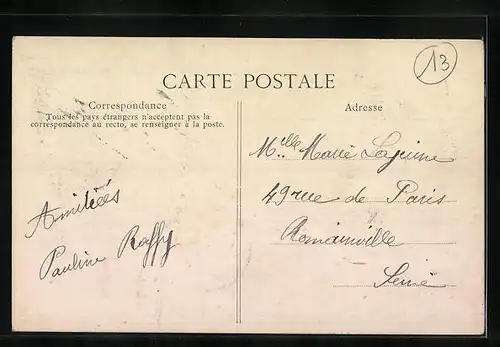 13
CARTE POSTALE
Correspondance
Tous les pays étrangers n'acceptent pas la
correspondance au recto, se renseigner à la poste.
Adresse
Amitiés
Pauline Raffy
Mlle Marie Lajeune
49 rue de Paris
Romainville
Seine